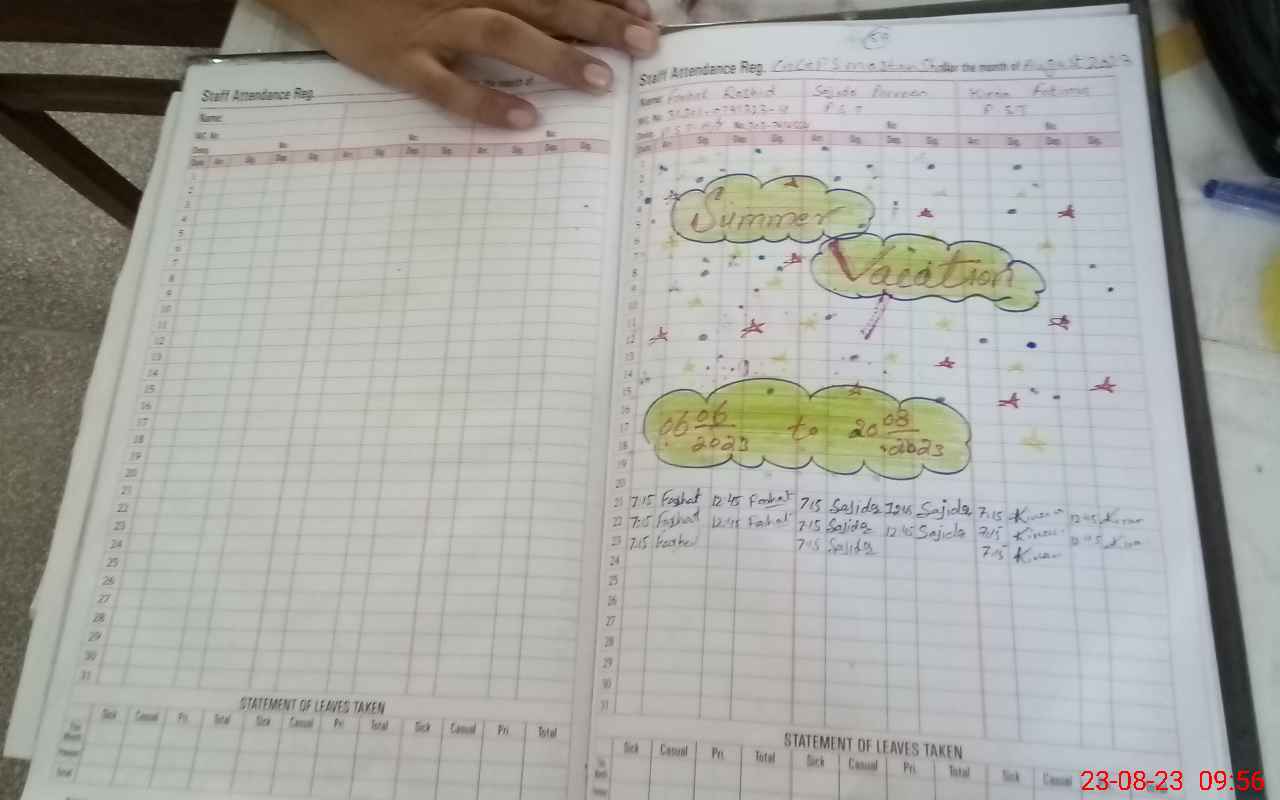 Staff Attendance Reg.
the month of
Name:
N.I.C. No.
No:
No:
No:
Desig.
Date Arr. Sig. Dep. Sig. Arr. Sig. Dep. Sig. Arr. Sig. Dep. Sig.
1
2
3
4
5
6
7
8
9
10
11
12
13
14
15
16
17
18
19
20
21
22
23
24
25
26
27
28
29
30
31
STATEMENT OF LEAVES TAKEN
Sick Casual Pri. Total Sick Casual Pri Total Sick Casual Pri Total
50
Staff Attendance Reg. for the month of August 2023
Name: Farhat Rashid Sajida Parveen Kiran Fatima
N.I.C. No. P.S.T P.S.T
Desig. No. No: No:
Date Arr. Sig. Dep. Sig. Arr. Sig. Dep. Sig. Arr. Sig. Dep. Sig.
1
2
3
4
Summer
5
6
7
8
Vacation
9
10
11
12
13
14
15
16
17
06 06/2023 to 20 08/2023
18
19
20
21 7:15 Farhat 12:45 Farhat 7:15 Sajida 12:45 Sajida 7:15 Kiran 12:45 Kiran
22 7:15 Farhat 12:45 Farhat 7:15 Sajida 12:45 Sajida 7:15 Kiran 12:45 Kiran
23 7:15 Farhat 7:15 Sajida 7:15 Kiran
24
25
26
27
28
29
30
31
STATEMENT OF LEAVES TAKEN
Sick Casual Pri. Total Sick Casual Pri. Total Sick Casual
23-08-23 09:56